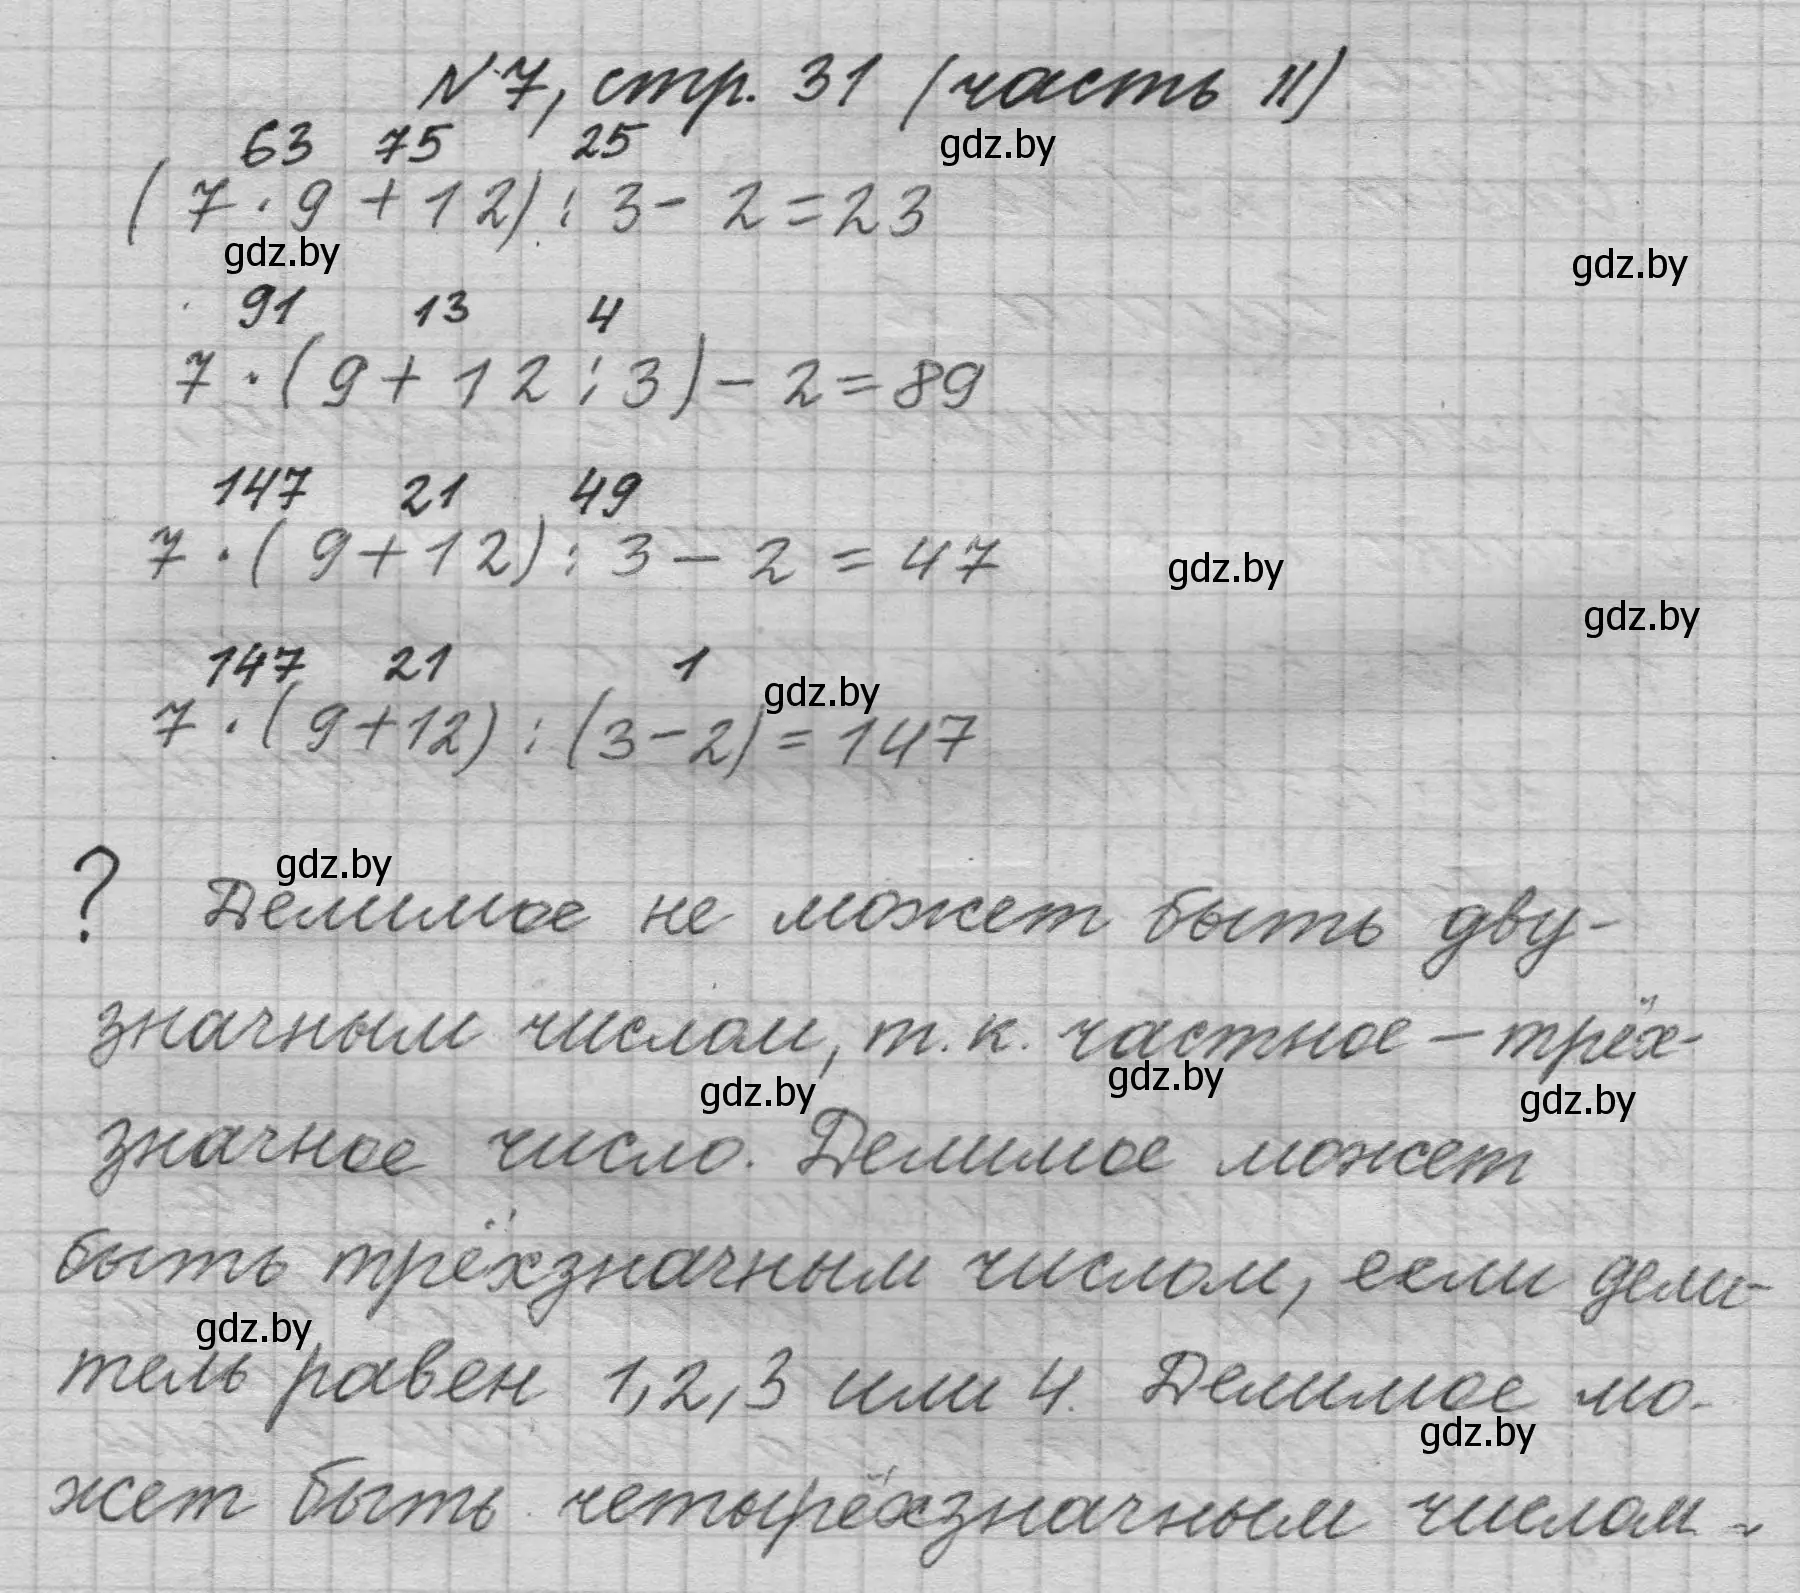 N 7, стр. 31 (часть II)
gdz.by
63 75 25
(7 · 9 + 12) : 3 - 2 = 23
gdz.by
gdz.by
91 13 4
7 · (9 + 12 : 3) - 2 = 89
147 21 49
7 · (9 + 12) : 3 - 2 = 47
gdz.by
gdz.by
147 21 1
gdz.by
7 · (9 + 12) : (3 - 2) = 147
gdz.by
? Делимое не может быть дву-
значным числом, т. к. частное – трёх-
gdz.by
gdz.by
gdz.by
значное число. Делимое может
быть трёхзначным числом, если дели-
gdz.by
тель равен 1, 2, 3 или 4. Делимое мо-
gdz.by
жет быть четырёхзначным числом -